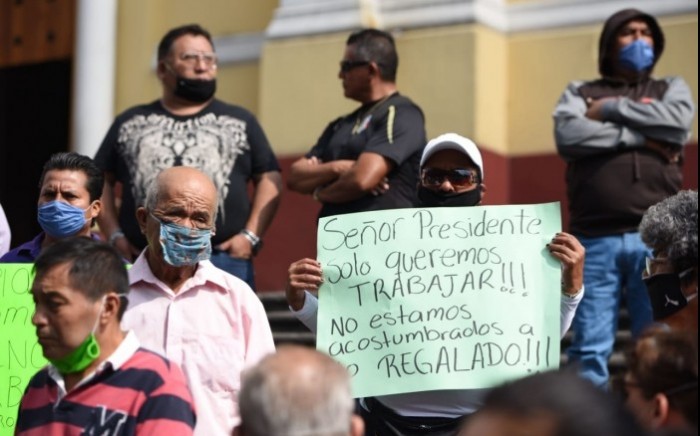 Señor Presidente
solo queremos
TRABAJAR!!!
No estamos
acostumbrados a
lo REGALADO!!!